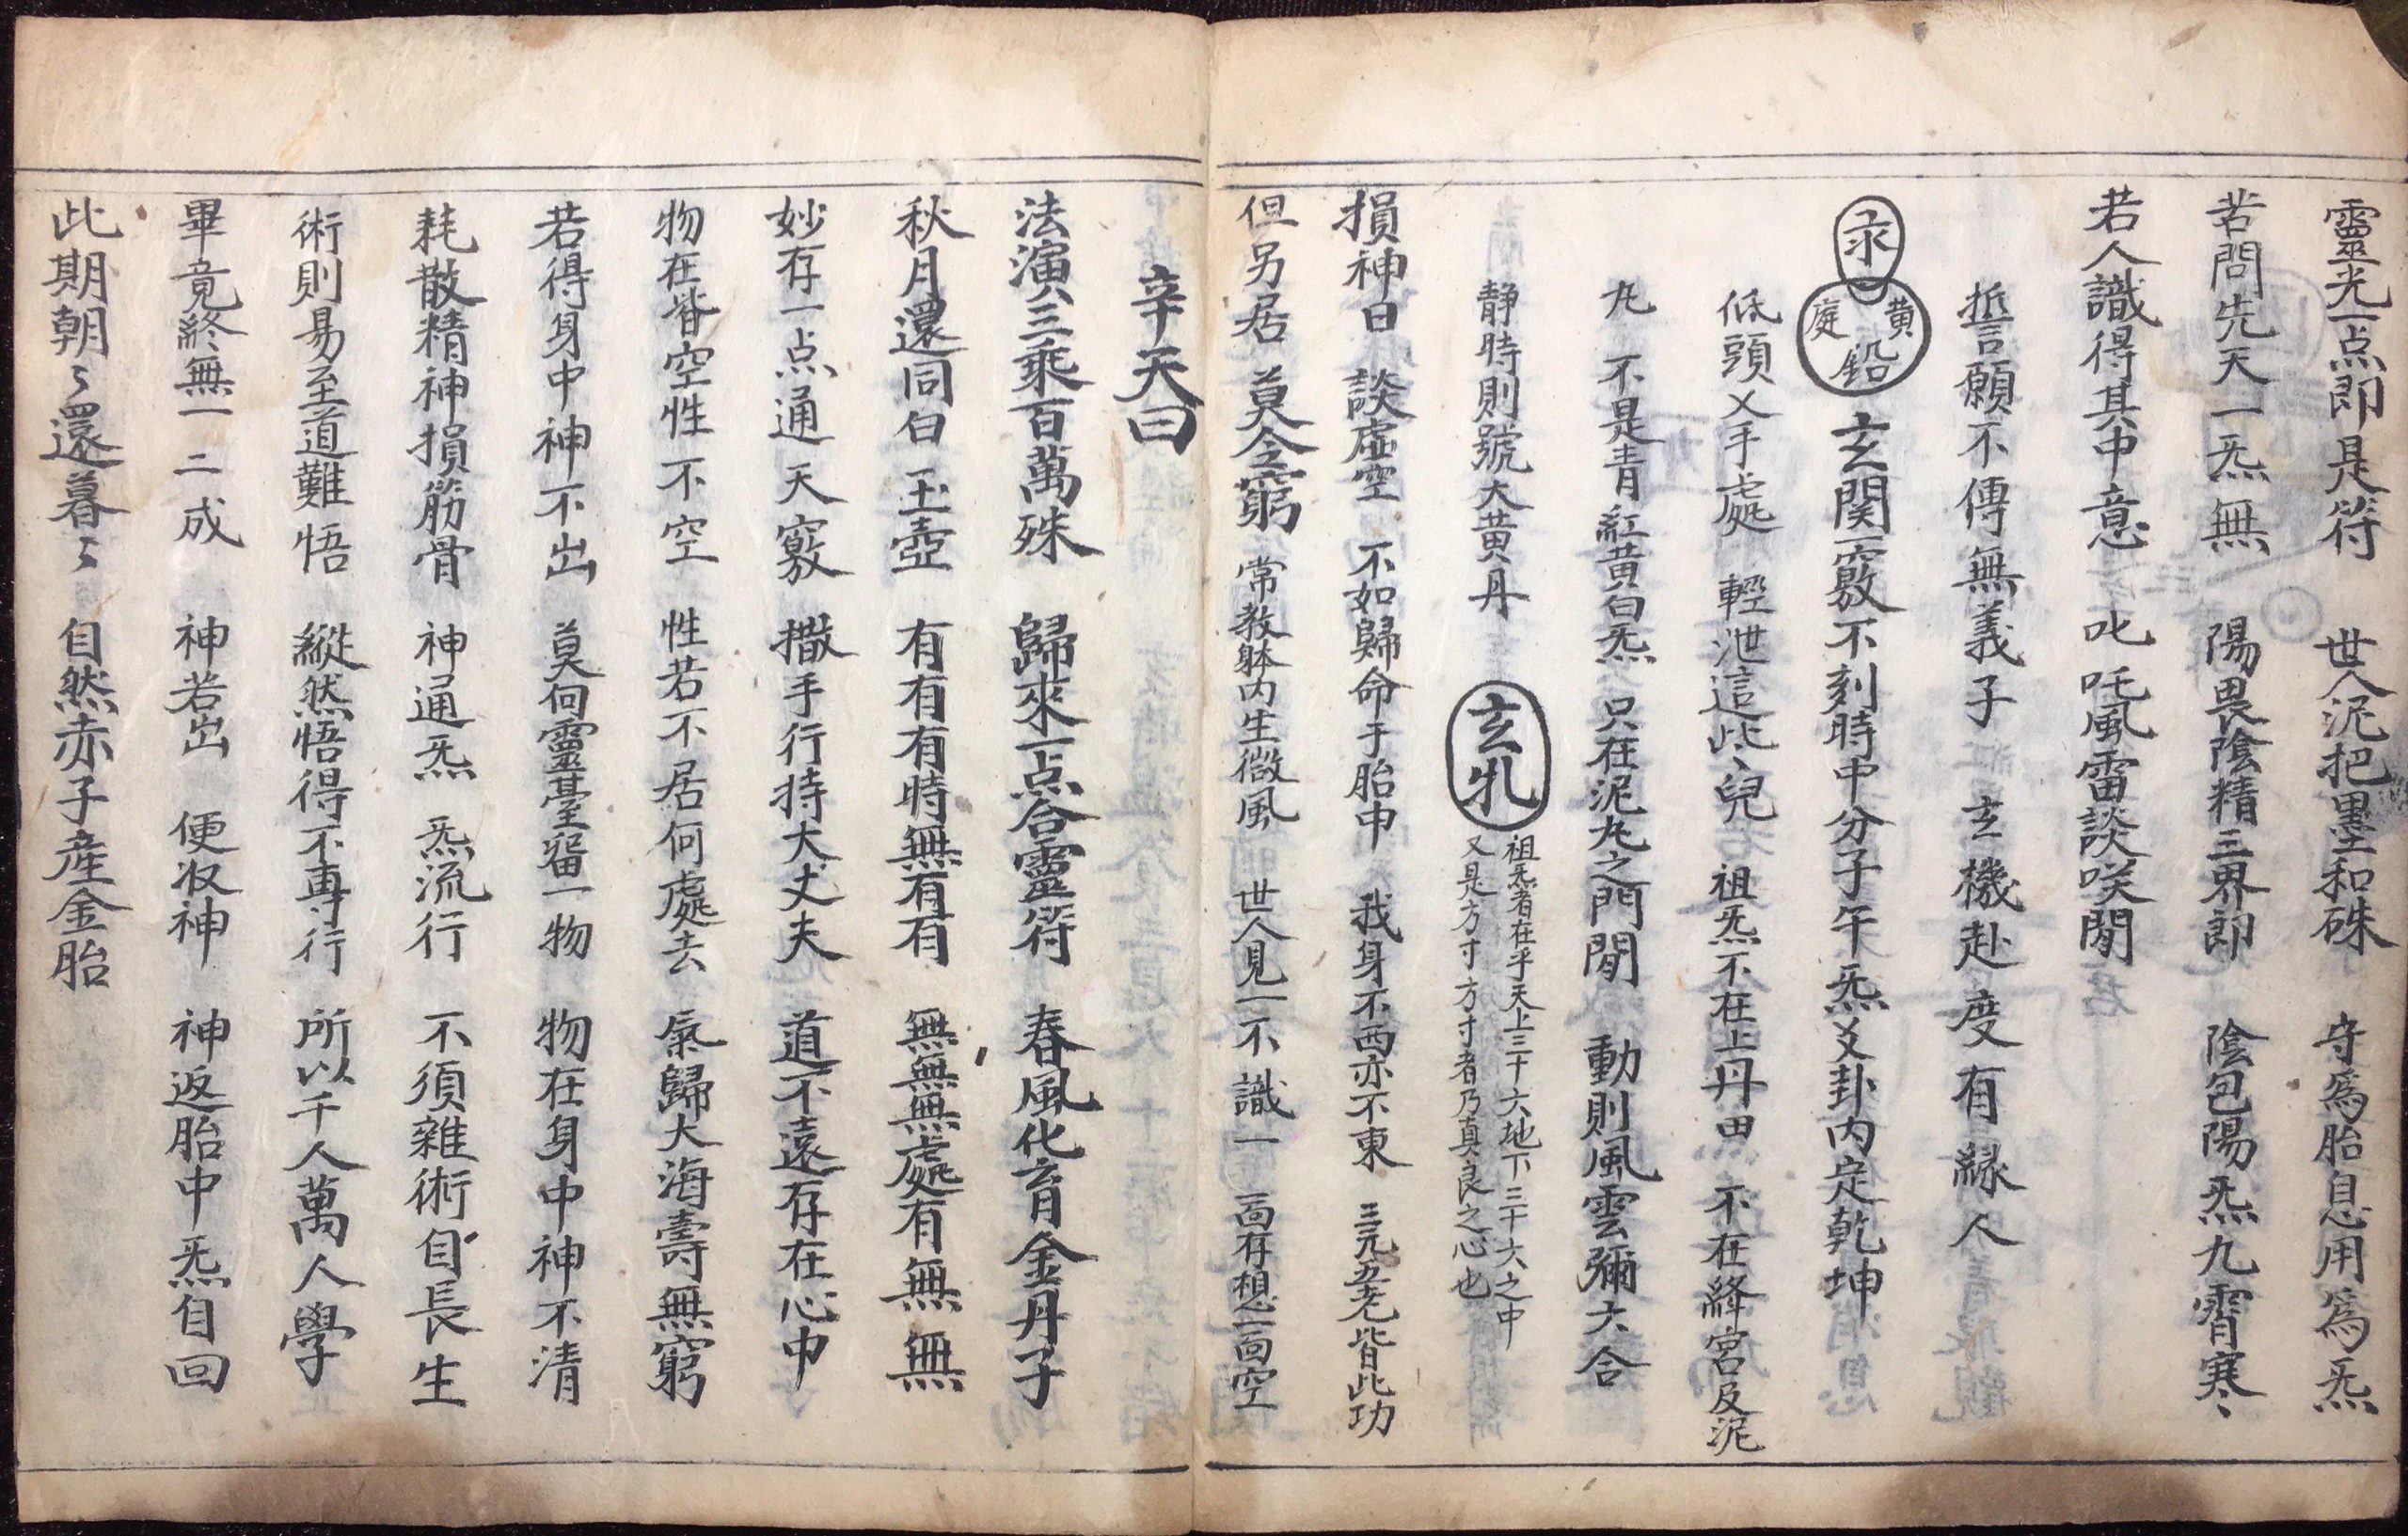 靈光一点即是符　世人泥把墨和硃　守爲胎息用爲炁
若問先天一炁無　陽畏陰精三界郎　陰包陽炁九霄寒〻
若人識得其中意　叱吒風雷談咲間
誓願不傳無義子　玄機赴度有縁人
汞　黄處鉛　玄関一竅不刻時中分子午　炁爻卦内定乾坤
低頭乂手處　輕泄這此〻兒　祖炁不在上丹田　不在絳宮及泥
丸　不是青紅黄白炁　只在泥丸之門間　動則風雲彌六合
静時則號大黄丹　玄牝　祖炁者在乎天上三十六地下三十六之中
又是方寸方寸者乃真良之心也
損神日　談虛空　不如歸命于胎中　我身不西亦不東　三元五老皆此功
但另居　莫令窮　常教躰内生微風　世人見一不識一　一面存想一面空
辛天曰
法演三乘百萬殊　歸來一点合靈符　春風化育金丹子
秋月還同白玉壺　有有有時無有有　無無無處有無無
妙存一点通天竅　撒手行持大丈夫　道不遠存在心中
物在皆空性不空　性若不居何處去　氣歸大海壽無窮
若得身中神不出　莫向靈臺畱一物　物在身中神不清
耗散精神損筋骨　神通炁　炁流行　不須雜術自長生
術則易至道難悟　縱然悟得不專行　所以千人萬人學
畢竟終無一二成　神若出　便收神　神返胎中炁自回
此期朝〻還暮〻　自然赤子産金胎